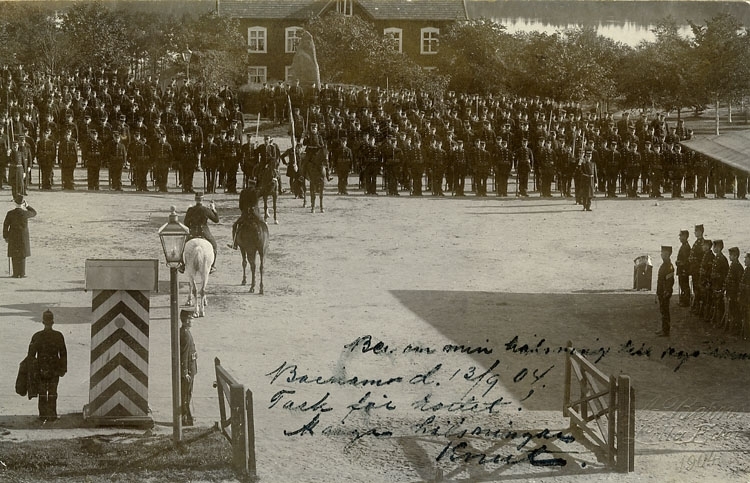 Be om min hälsning till
Baernamo d. 13/9 04.
Tack för kortet!
Många hälsningar
Knut.
1904